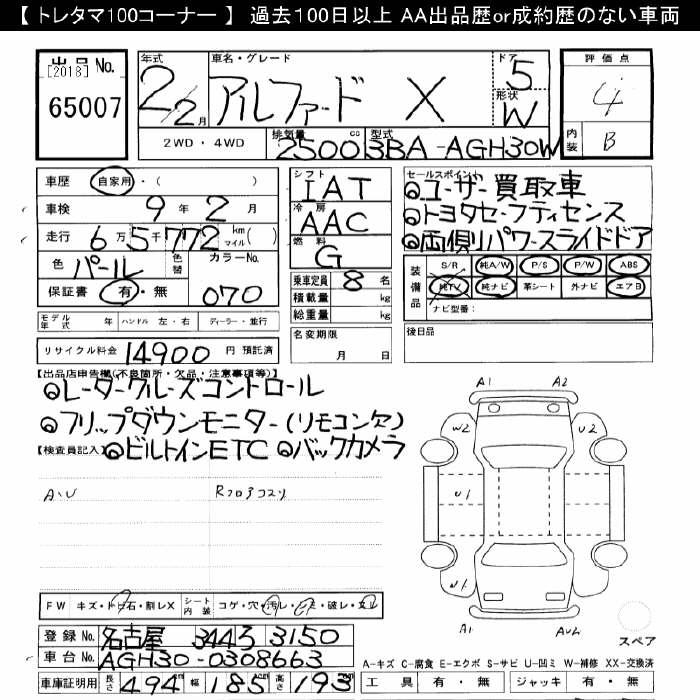 【 トレタマ100コーナー 】 過去100日以上 AA出品歴or成約歴のない車両
出品 No.
[2018]
65007
年式
2/2月
車名・グレード
アルファード X
ドア
5
形状
W
評価点
4
内装 B
2WD・4WD
排気量 cc
2500
型式
3BA-AGH30W
車歴 自家用・( )
車検 9年2月
走行 6万5千772 km マイル( )
色 パール 色替 カラーNo.
保証書 有・無 070
シフト
IAT
冷房
AAC
燃料
G
乗車定員 8 名
積載量 kg
総重量 kg
セールスポイント
◎ユーザー買取車
◎トヨタセーフティセンス
◎両側パワースライドドア
装備品
S/R 純A/W P/S P/W ABS
純TV 純ナビ 革シート 外ナビ エアB
ナビ型番:
モデル年式 年 ハンドル 左・右 ディーラー・並行
名変期限
月 日
後日品
リサイクル料金 14900 円 預託済
【出品店申告欄(不良箇所・欠品・注意事項等)】
◎レーダークルーズコントロール
◎フリップダウンモニター(リモコン欠)
【検査員記入】 ◎ビルトインETC ◎バックカメラ
A・U Rフロアコスリ
A1 A2
W2 U2
U1
W1
A1 AU2
スペア
FW キズ・トビ石・割レX シート内装 コゲ・穴・汚レ・シミ・破レ・スレ
登録No. 名古屋 344ら 3150
車台No. AGH30-0308663
車庫証明用 長さ 494 幅 185 高さ 193
A-キズ C-腐食 E-エクボ S-サビ U-凹ミ W-補修 XX-交換済
工具 有・無 ジャッキ 有・無